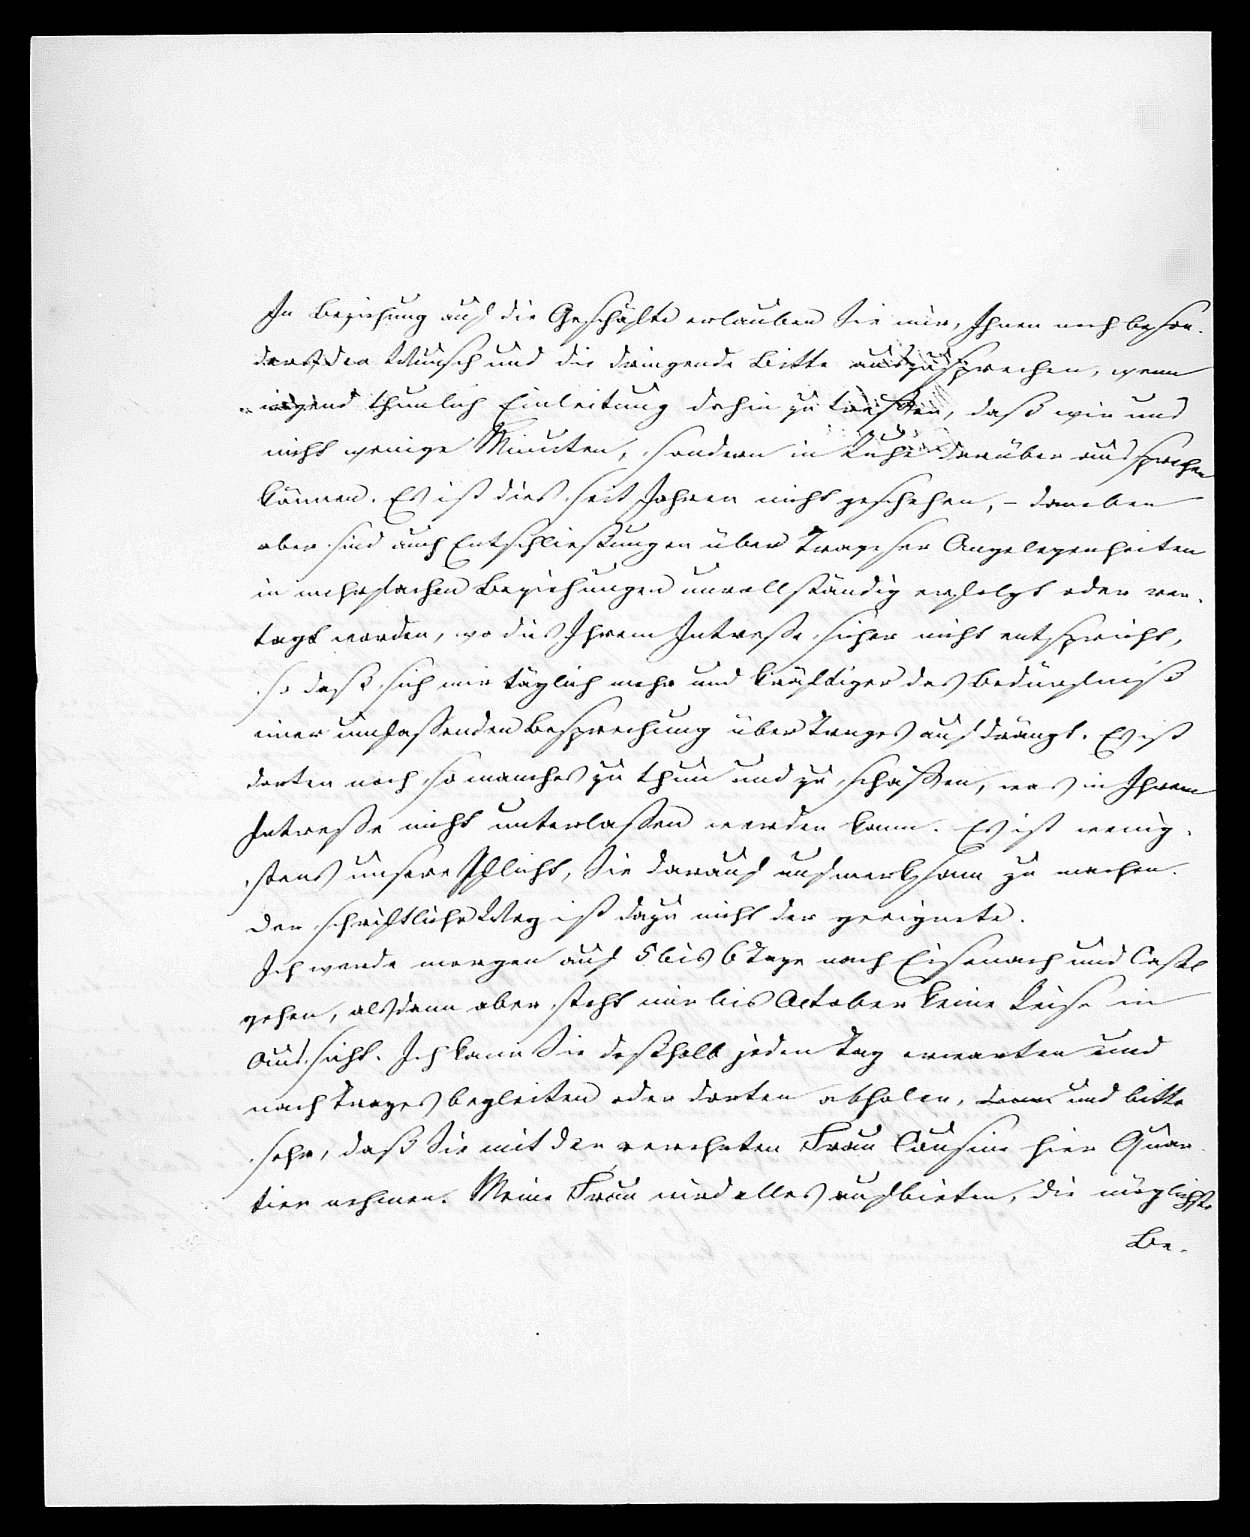 In Beziehung auf die Geschäfte erlauben Sie mir, Ihnen noch beson-
ders den Wunsch und die dringende Bitte auszusprechen, wenn
irgend thunlich Einleitung dahin zu treffen, daß wir uns
nicht wenige Minuten, sondern in Ruhe darüber aussprechen
können. Es ist dies seit Jahren nicht geschehen, – daneben
aber sind auch Entschließungen über Trageser Angelegenheiten
in mehrfachen Beziehungen unvollständig erfolgt oder ver-
tagt worden, wo dies Ihrem Intresse sicher nicht entspricht,
so daß sich mir täglich mehr und kräftiger das Bedürfniß
einer umfassenden Besprechung über Trages aufdrängt. Es ist
dorten noch so manches zu thun und zu schaffen, was in Ihrem
Intresse nicht unterlassen werden kann. Es ist wenig-
stens unsere Pflicht, Sie darauf aufmerksam zu machen.
Der schriftliche Weg ist dazu nicht der geeignete.
Ich werde morgen auf 5 bis 6 Tage nach Eisenach und Cassel
gehen, alsdann aber steht mir bis October keine Reise in
Aussicht. Ich kann Sie deßhalb jeden Tag erwarten und
nach Trages begleiten oder dorten abholen, und bitte
sehr, daß Sie mit der verehrten Frau Cousine hier Quar-
tier nehmen. Meine Frau wird alles aufbieten, die möglichste
Be-